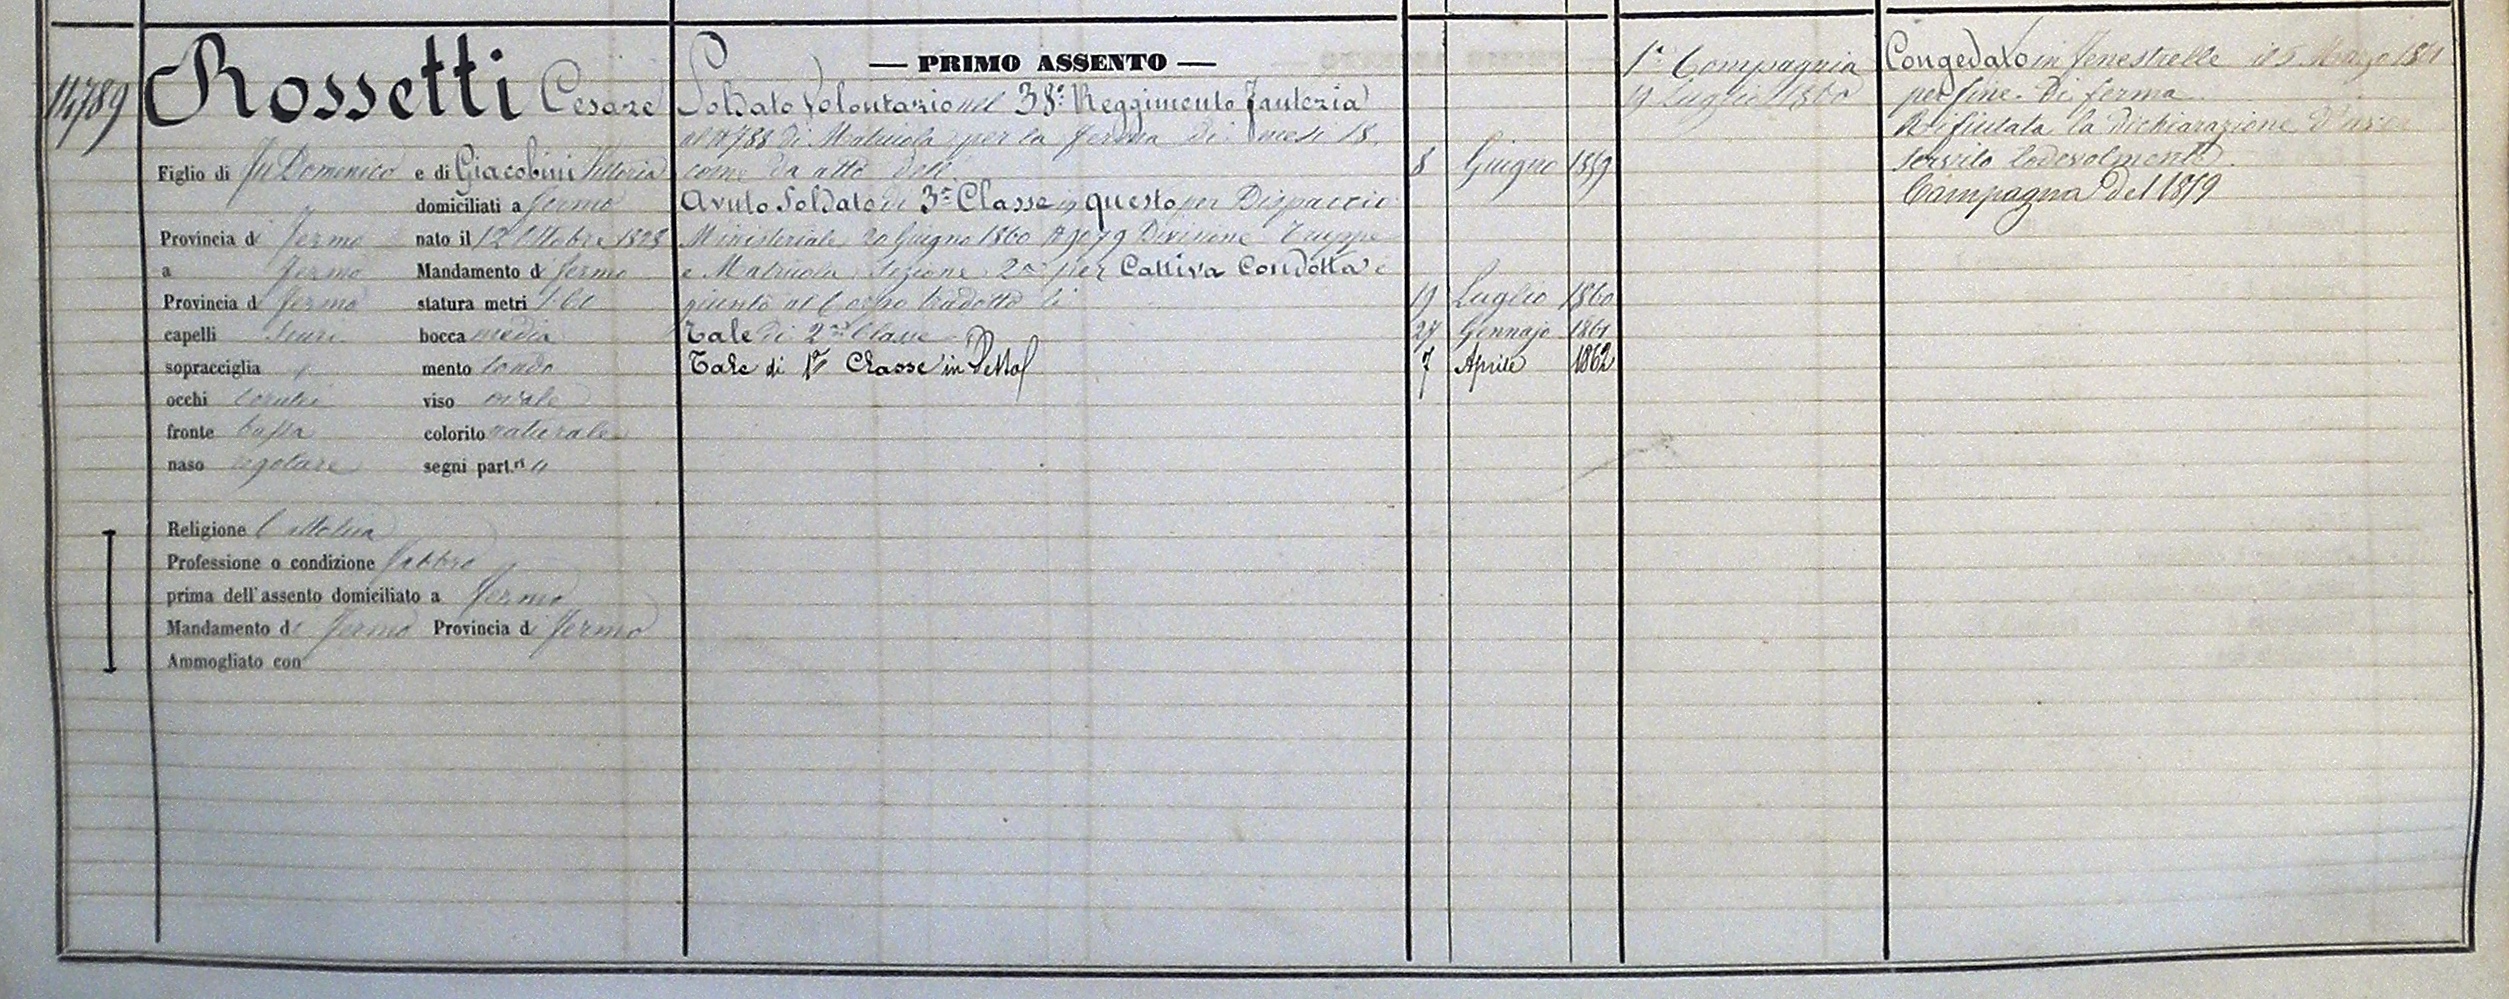 14789
Rossetti Cesare
Figlio di fu Domenico e di Giacobini Vittoria
domiciliati a Fermo
Provincia di Fermo nato il 12 Ottobre
a Fermo Mandamento di Fermo
Provincia di Fermo statura metri
capelli scuri bocca media
sopracciglia mento tondo
occhi cerulei viso ovale
fronte bassa colorito naturale
naso regolare segni part.ri
Religione Cattolica
Professione o condizione Fabbro
prima dell'assento domiciliato a Fermo
Mandamento di Fermo Provincia di Fermo
Ammogliato con
— PRIMO ASSENTO —
Soldato Volontario nel 38° Reggimento Fanteria
al N 788 di Matricola per la ferma di mesi 18.
come da atto delli 8 Giugno 1859
Avuto Soldato di 3a Classe in questo per Dispaccio
Ministeriale 20 Giugno 1860 N 9079 Divisione Truppe
e Matricola Sezione 2a per Cattiva Condotta e
giunto al Corpo tradotto li 19 Luglio 1860
Tale di 2a Classe 27 Gennajo 1861
Tale di 1a Classe in 7 Aprile 1862
1a Compagnia
19 Luglio 1860
Congedato in Fenestrelle il 5 Marzo
per fine di ferma
Rifiutata la dichiarazione d'aver
servito lodevolmente.
Campagna del 1859